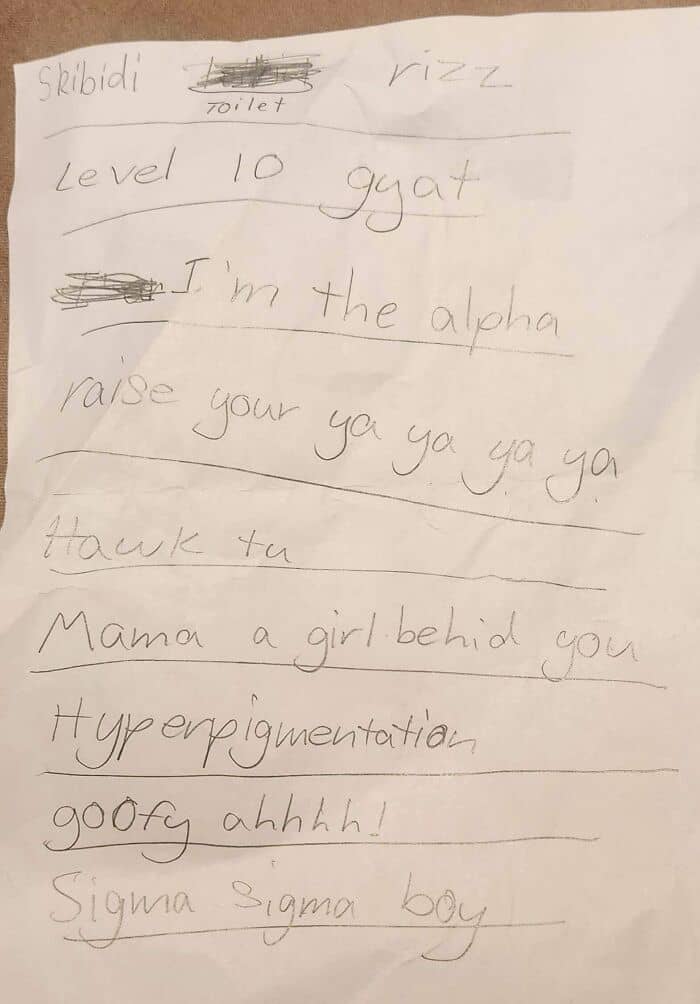 Skibidi Toilet rizz
Level 10 gyat
I'm the alpha
raise your ya ya ya ya
Hawk tu
Mama a girl behid you
Hyperpigmentation
goofy ahhhh!
Sigma sigma boy